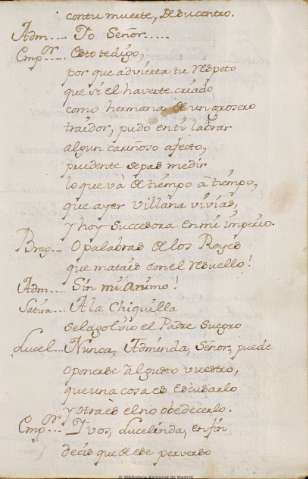 contu muerte, de tu centro.
Adm.... Yo Señor.....
Emp.or.... Esto te digo,
por que advierta tu respeto
que si el haverte criado
como hermana de un grosero
traidor, pudo en ti labrar
algun cariñoso afecto,
prudente sepas medir
lo que và de tiempo à tiempo,
que ayer Villana vivias,
y hoy succesora en mi imperio.
O palabras de los Reyes
que matais con el resuello!
Adm.... Sin mi animo!
A la Chiquilla
el Padre Suegro
Lucel... Nunca, Adminda, Señor, puede
oponerse al gusto vuestro,
que una cosa es escusarlo
y otra es el no obedecerlo.
Emp.or.... Y vos, Lucelinda, en fin,
decis que de ese perverso